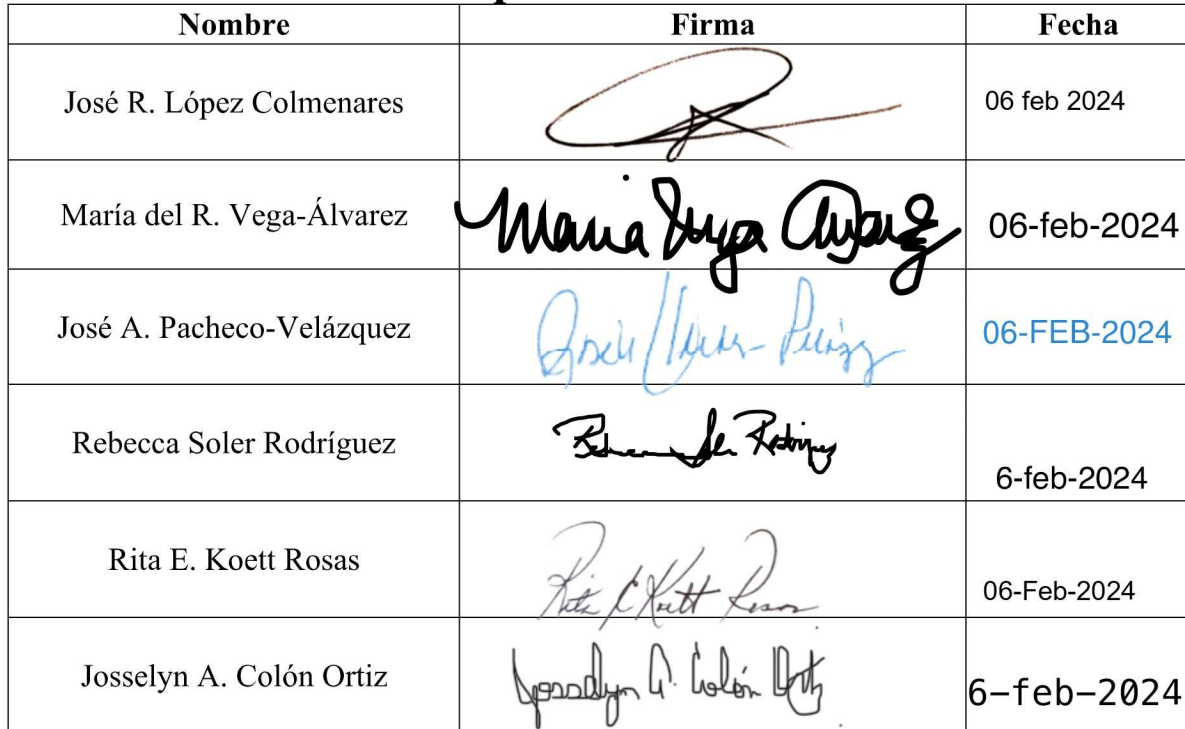 Nombre Firma Fecha
José R. López Colmenares 06 feb 2024
María del R. Vega-Álvarez Maria Vega Alvarez 06-feb-2024
José A. Pacheco-Velázquez 06-FEB-2024
Rebecca Soler Rodríguez Rebecca Soler Rodríguez 6-feb-2024
Rita E. Koett Rosas Rita E Koett Rosas 06-Feb-2024
Josselyn A. Colón Ortiz Josselyn A. Colón Ortiz 6-feb-2024